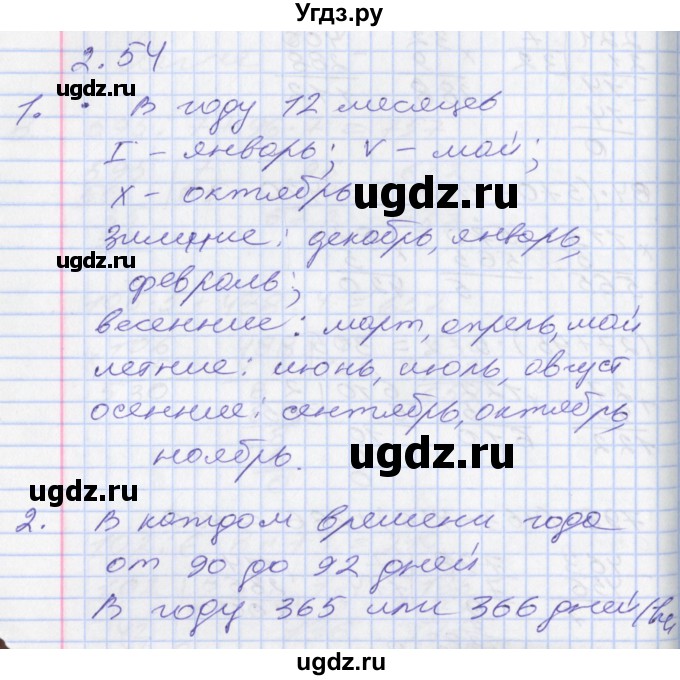 Угдз.ру
2.54
ugdz.ru
1. • В году 12 месяцев
I - январь; V - май;
X - октябрь
ugdz.ru
зимние: декабрь, январь,
ugdz.ru
февраль;
весенние: март, апрель, май
летние: июнь, июль, август
осенние: сентябрь, октябрь,
ноябрь.
ugdz.ru
ugdz.ru
2. В каждом времени года
от 90 до 92 дней
В году 365 или 366 дней
ugdz.ru